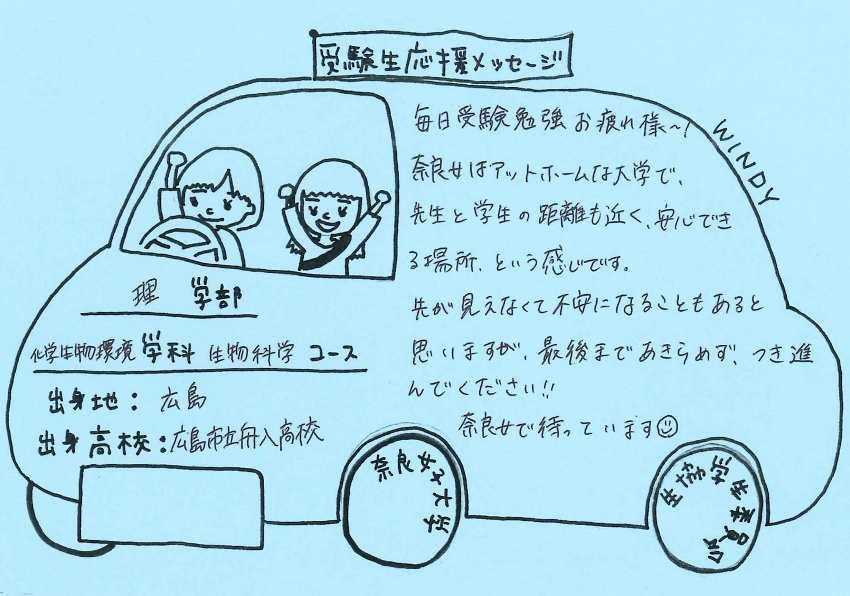 受験生応援メッセージ
WINDY
毎日受験勉強お疲れ様～!
奈良女はアットホームな大学で、
先生と学生の距離も近く、安心でき
る場所、という感じです。
先が見えなくて不安になることもあると
思いますが、最後まであきらめず、つき進
んでください!!
奈良女で待っています☺
理 学部
化学生物環境学科 生物科学 コース
出身地：広島
出身高校：広島市立舟入高校
奈良女子大学
生協学生委員会